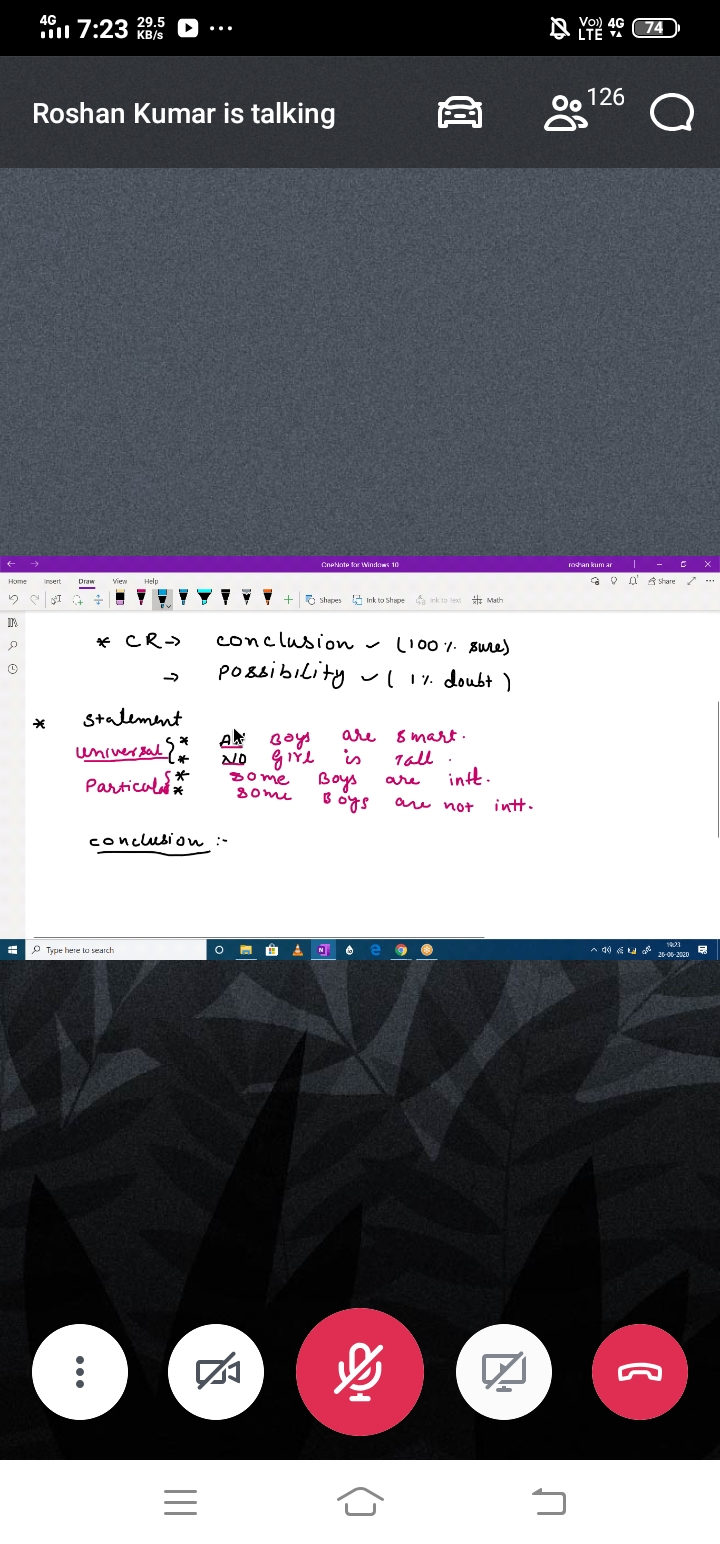 4G 7:23 29.5 KB/s ... Vo)) LTE 4G 74
Roshan Kumar is talking 126
OneNote for Windows 10 roshan kumar
Home Insert Draw View Help Share
Shapes Ink to Shape Ink to Text Math
* CR→ conclusion ✓ (100% sure)
→ possibility ✓ ( 1% doubt )
* statement
universal { * All Boys are smart.
* NO girl is Tall.
Particular { * some Boys are intt.
* some Boys are not intt.
conclusion :-
Type here to search 19:23
26-06-2020